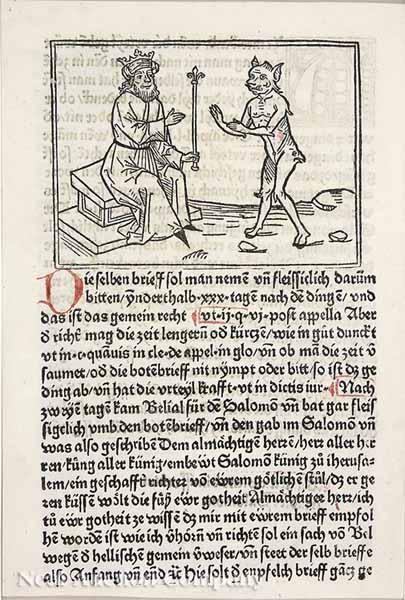 Die selben brieff sol man nemē vn̄ fleissiclich darūm
bitten/ynderthalb·xxx·tagē nach dē dinge/und
das ist das gemein recht vt·ij·q·vj·post appella Aber
d̄ richt̄ mag die zeit lengern̄ od̄ kürtzen/wie in gūt dunckt
vt in·c·quāuis in cle·de appel·in glo/vn̄ ob mā die zeit v̄
saumet/od̄ die botēbrieff nit nympt oder bitt/so ist dz ge
ding ab/vn̄ hat die vrteyl krafft·vt in dictis iur· Nach
zweyē tagē kam Belial für dē Salomō vn̄ bat gar fleis
sigelich vmb den botēbrieff/vn̄ den gab im Salomō vn̄
was also geschribē Dem almächtigē herrē/herr aller her
ren/küng aller künig/embewt Salomō künig zū iherusa-
lem/ein geschafft̄ richter vō ewrem götlichē stūl/dz er ge
ren küssē wölt die füß ewr gotheit Almächtiger herr/ich
tū ewr gotheit ze wissē dz mir mit ewrem brieff empfol
hē wordē ist wie ich v̄hörn̄ vn̄ richtē sol ein sach vō Bel
wegē d̄ hellischē gemein ōweser/vn̄ steet der selb brieffe
also Anfang vn̄ end ꝛc̄ Hie solt d̄ empfelch brieff gācz ge